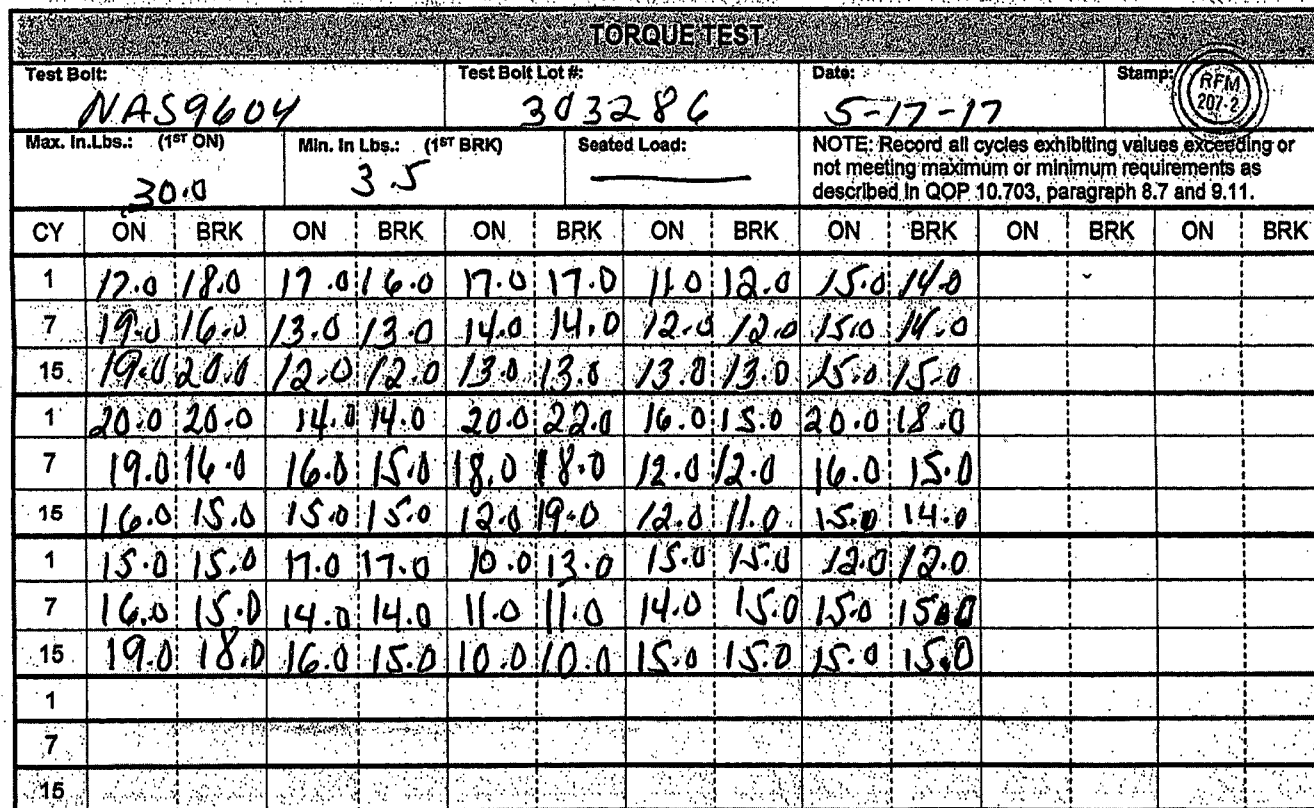 TORQUE TEST
Test Bolt: Test Bolt Lot #: Date: Stamp:
NAS9604 303286 5-17-17 RFM 207-2
Max. In.Lbs.: (1ST ON) Min. In Lbs.: (1ST BRK) Seated Load: NOTE: Record all cycles exhibiting values exceeding or
not meeting maximum or minimum requirements as
30.0 3.5 described in QOP 10.703, paragraph 8.7 and 9.11.
CY ON BRK ON BRK ON BRK ON BRK ON BRK ON BRK ON BRK
1 17.0 18.0 17.0 16.0 17.0 17.0 11.0 12.0 15.0 14.0
7 19.0 16.0 13.0 13.0 14.0 14.0 12.0 12.0 15.0 14.0
15 19.0 20.0 12.0 12.0 13.0 13.0 13.0 13.0 15.0 15.0
1 20.0 20.0 14.0 14.0 20.0 22.0 16.0 15.0 20.0 18.0
7 19.0 16.0 16.0 15.0 18.0 18.0 12.0 12.0 16.0 15.0
15 16.0 15.0 15.0 15.0 12.0 19.0 12.0 11.0 15.0 14.0
1 15.0 15.0 17.0 17.0 10.0 13.0 15.0 15.0 12.0 12.0
7 16.0 15.0 14.0 14.0 11.0 11.0 14.0 15.0 15.0 15.0
15 19.0 18.0 16.0 15.0 10.0 10.0 15.0 15.0 15.0 15.0
1
7
15